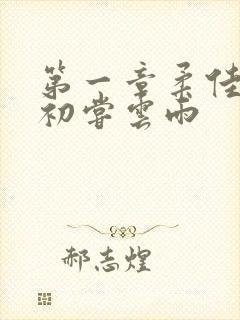 第一章柔佳
初嘗雲雨
郝志煌